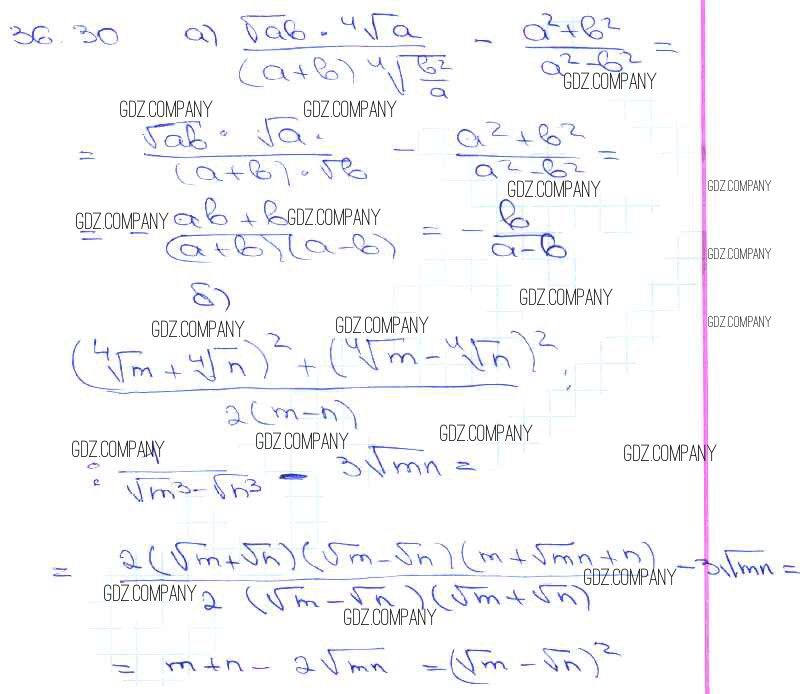 36.30 а) (√ab · ⁴√a) / ((a+b) ⁴√(b²/a)) − (a²+b²)/(a²−b²) =
GDZ.COMPANY
GDZ.COMPANY GDZ.COMPANY
= (√ab · √a ·) / ((a+b) · √b) − (a²+b²)/(a²−b²) =
GDZ.COMPANY GDZ.COMPANY
GDZ.COMPANY GDZ.COMPANY
= − (ab+b)/((a+b)(a−b)) = − b/(a−b)
GDZ.COMPANY
б) GDZ.COMPANY
GDZ.COMPANY GDZ.COMPANY GDZ.COMPANY
((⁴√m + ⁴√n)² + (⁴√m − ⁴√n)²) / (2(m−n)) :
GDZ.COMPANY GDZ.COMPANY GDZ.COMPANY GDZ.COMPANY
: 1/(√m³−√n³) − 3√mn =
= (2(√m+√n)(√m−√n)(m+√mn+n)) / (2(√m−√n)(√m+√n)) − 3√mn =
GDZ.COMPANY GDZ.COMPANY
GDZ.COMPANY
= m+n − 2√mn = (√m − √n)²